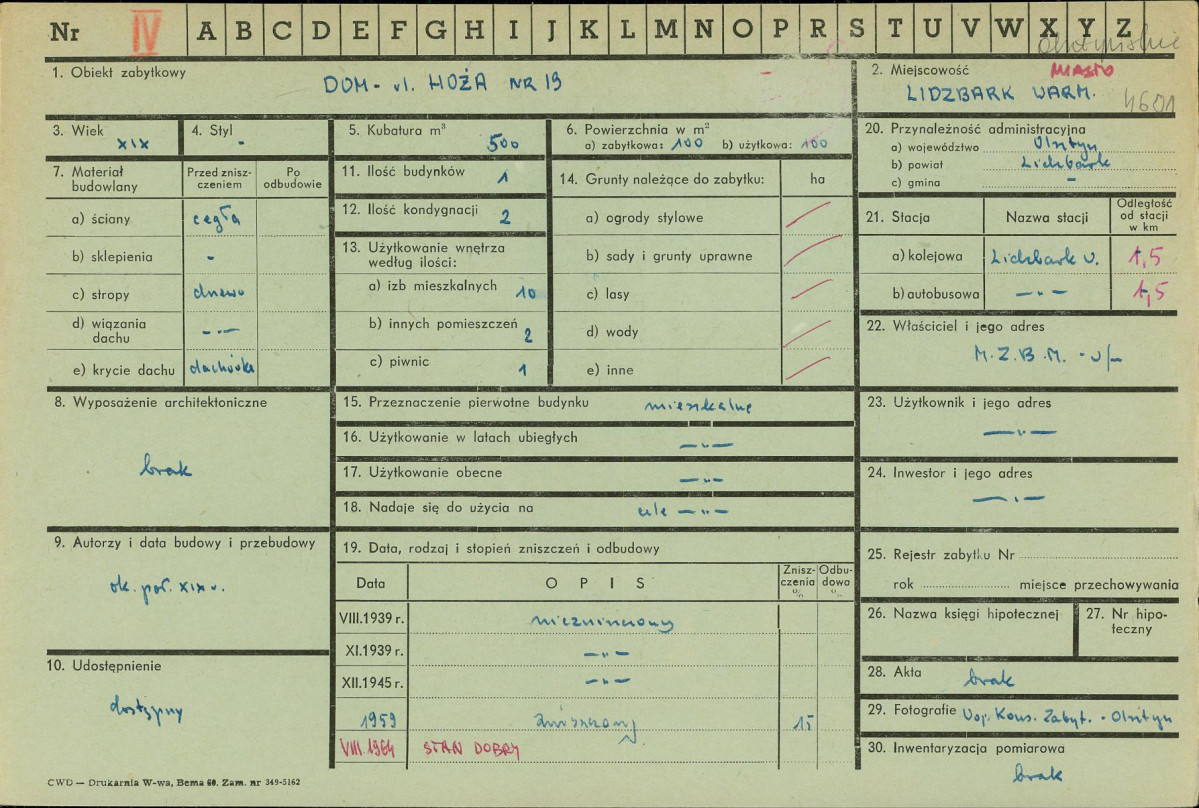 Nr IV A B C D E F G H I J K L M N O P R S T U V W X Y Z
olsztyńskie
1. Obiekt zabytkowy
DOM - ul. HOŻA NR 19
2. Miejscowość MIASTO
LIDZBARK WARM. 4601
3. Wiek
XIX
4. Styl
-
5. Kubatura m³
500
6. Powierzchnia w m²
a) zabytkowa: 100 b) użytkowa: 100
7. Materiał budowlany
Przed zniszczeniem
Po odbudowie
a) ściany cegła
b) sklepienia -
c) stropy drewno
d) wiązania dachu -"-
e) krycie dachu dachówka
8. Wyposażenie architektoniczne
brak
9. Autorzy i data budowy i przebudowy
ok. poł. XIX w.
10. Udostępnienie
dostępny
CWD — Drukarnia W-wa, Bema 60. Zam. nr 349-5162
11. Ilość budynków 1
12. Ilość kondygnacji 2
13. Użytkowanie wnętrza według ilości:
a) izb mieszkalnych 10
b) innych pomieszczeń 2
c) piwnic 1
14. Grunty należące do zabytku: ha
a) ogrody stylowe
b) sady i grunty uprawne
c) lasy
d) wody
e) inne
15. Przeznaczenie pierwotne budynku mieszkalne
16. Użytkowanie w latach ubiegłych -"-
17. Użytkowanie obecne -"-
18. Nadaje się do użycia na cele -"-
19. Data, rodzaj i stopień zniszczeń i odbudowy
Data OPIS Zniszczenia % Odbudowa %
VIII.1939 r. niezniszczony
XI.1939 r. -"-
XII.1945 r. -"-
1959 zniszczony 15
VIII.1964 STAN DOBRY
20. Przynależność administracyjna
a) województwo Olsztyn
b) powiat Lidzbark
c) gmina -
21. Stacja
Nazwa stacji
Odległość od stacji w km
a) kolejowa Lidzbark W. 1,5
b) autobusowa -"- 1,5
22. Właściciel i jego adres
M.Z.B.M. - w/m
23. Użytkownik i jego adres
-"-
24. Inwestor i jego adres
-"-
25. Rejestr zabytku Nr
rok miejsce przechowywania
26. Nazwa księgi hipotecznej
27. Nr hipoteczny
28. Akta brak
29. Fotografie Woj. Kons. Zabyt. - Olsztyn
30. Inwentaryzacja pomiarowa
brak